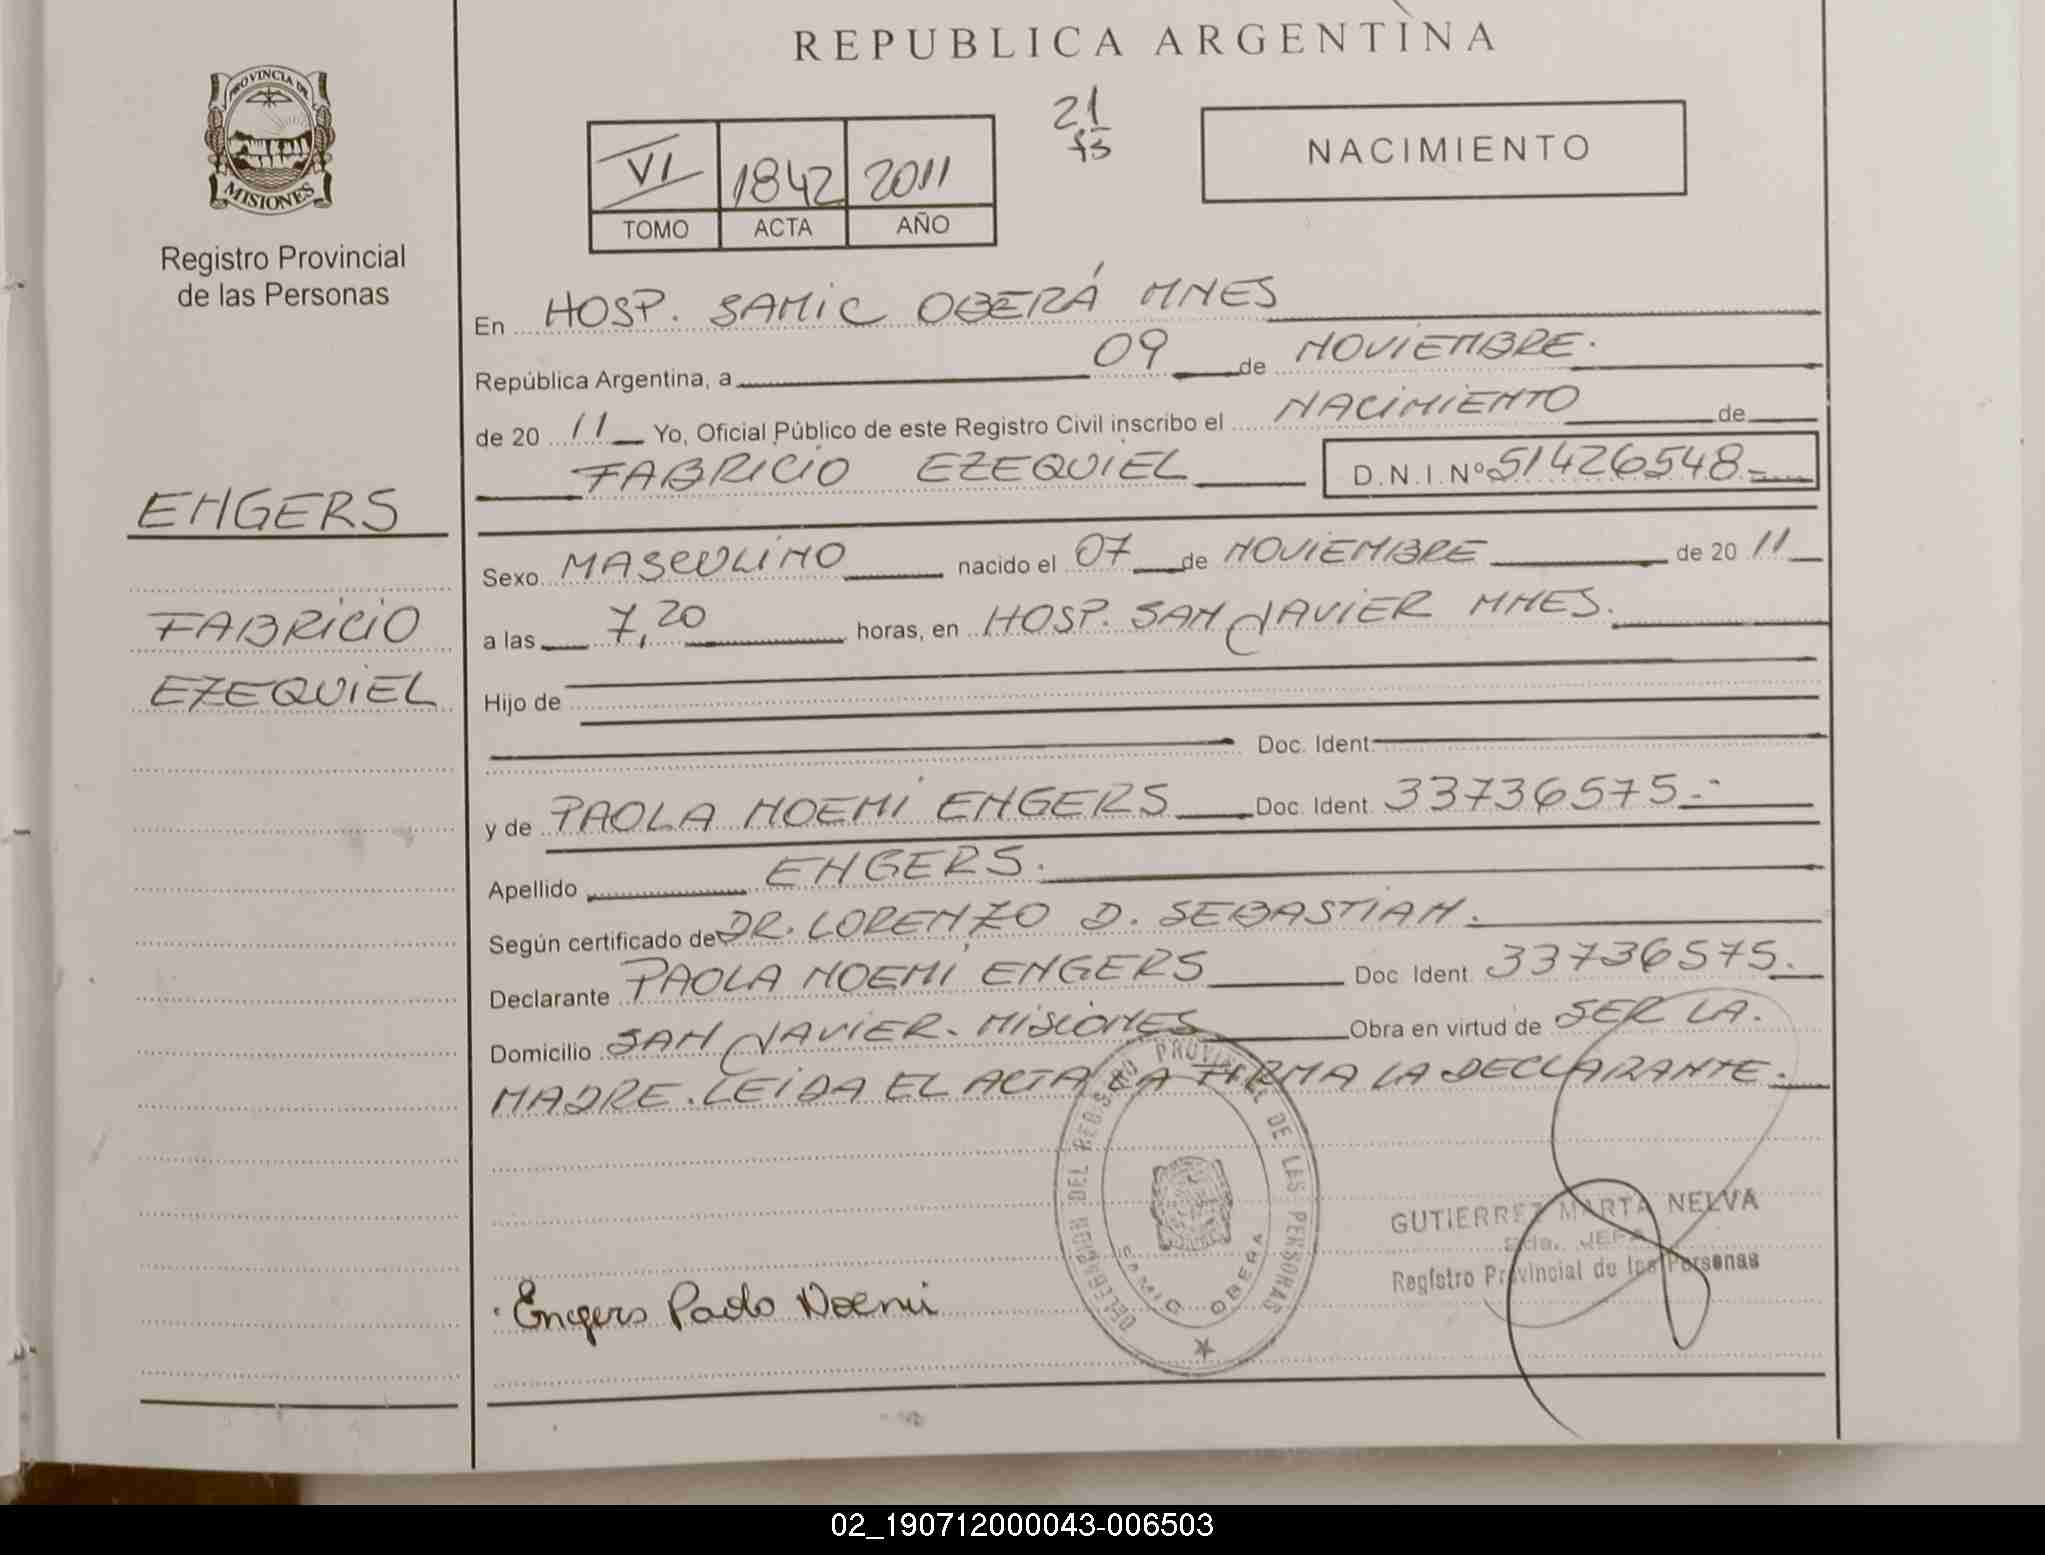 REPUBLICA ARGENTINA
PROVINCIA DE
MISIONES
Registro Provincial
de las Personas
VI 1842 2011
TOMO ACTA AÑO
21
NACIMIENTO
En HOSP. SAMIC OBERÁ MNES
República Argentina, a 09 de NOVIEMBRE.
de 20 11 Yo, Oficial Público de este Registro Civil inscribo el NACIMIENTO de
FABRICIO EZEQUIEL D.N.I.Nº 51426548.=
ENGERS
FABRICIO
EZEQUIEL
Sexo MASCULINO nacido el 07 de NOVIEMBRE de 20 11
a las 7,20 horas, en HOSP. SAN JAVIER MNES.
Hijo de
Doc. Ident.
y de PAOLA NOEMI ENGERS Doc. Ident. 33736575.-
Apellido ENGERS.
Según certificado de DR. LORENZO D. SEBASTIAN.
Declarante PAOLA NOEMI ENGERS Doc. Ident. 33736575.
Domicilio SAN JAVIER. MISIONES Obra en virtud de SER LA.
MADRE. LEIDA EL ACTA LA FIRMA LA DECLARANTE.
DELEGACION DEL REGISTRO PROVINCIAL DE LAS PERSONAS
SAMIC OBERA
GUTIERREZ MARTA NELVA
JEFA
Registro Provincial de las Personas
Engers Paola Noemi
02_190712000043-006503